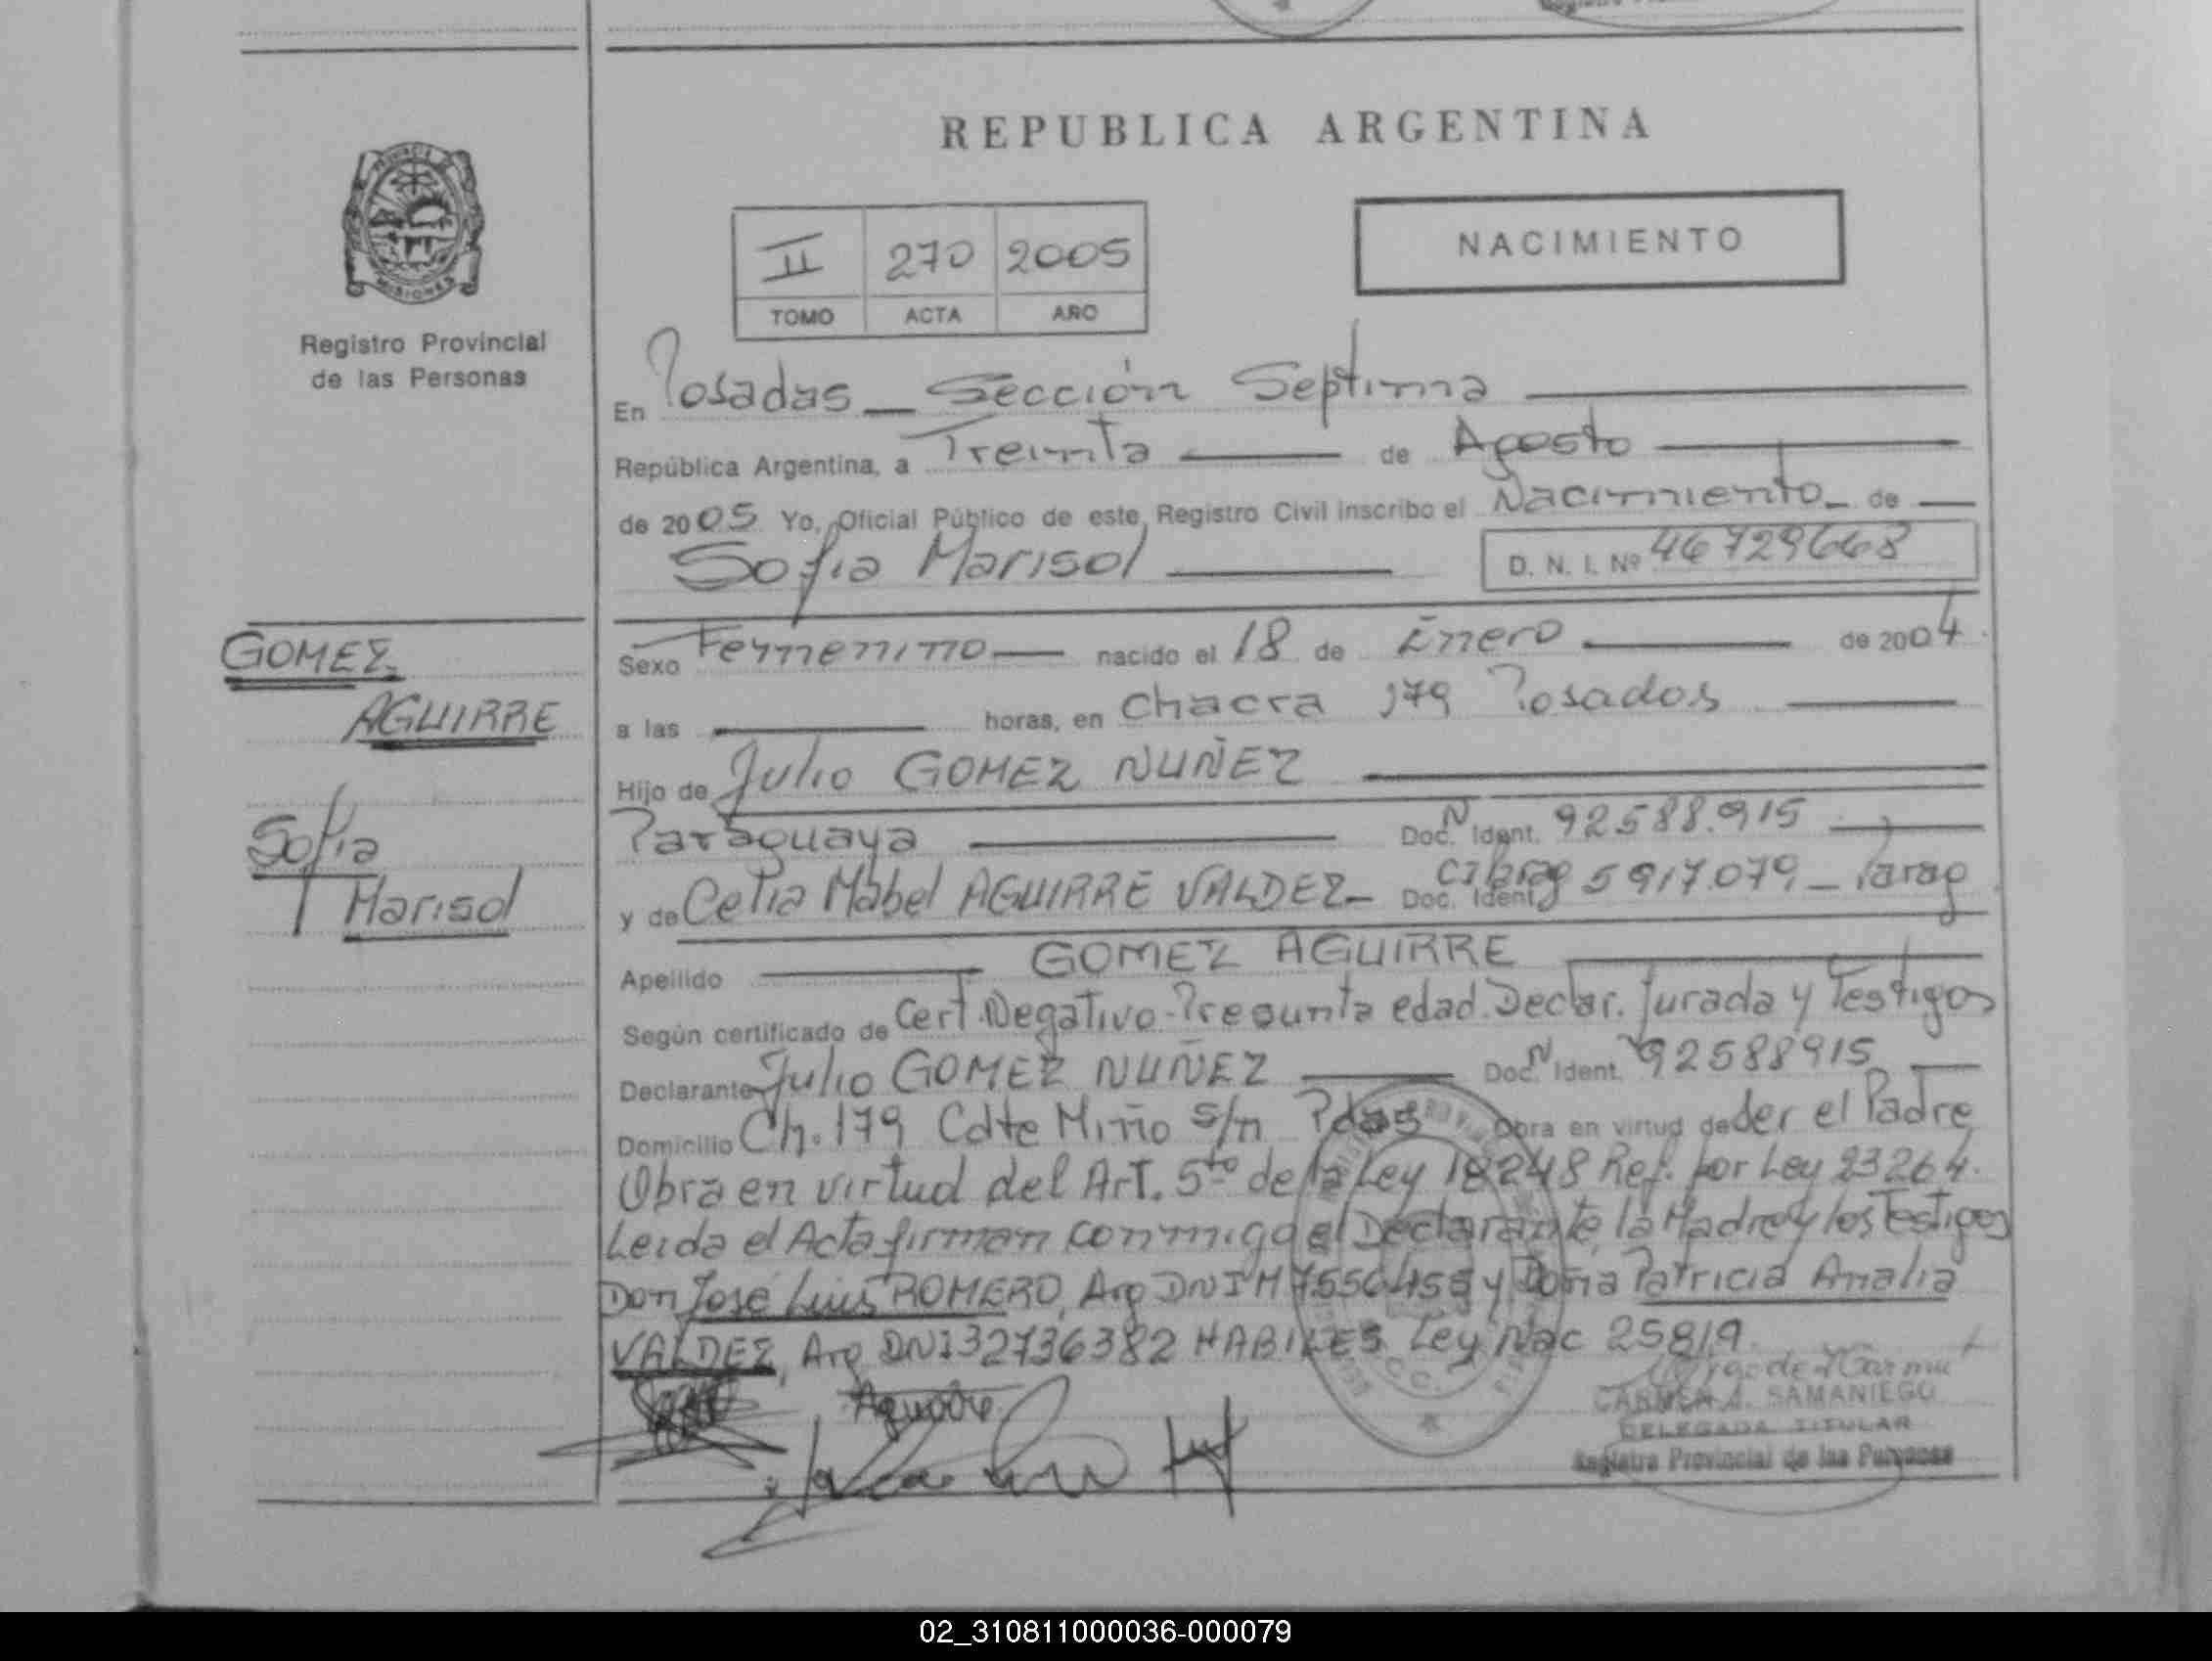 REPUBLICA ARGENTINA
PROVINCIA DE
MISIONES
Registro Provincial
de las Personas
II 270 2005
TOMO ACTA AÑO
NACIMIENTO
En Posadas _ Sección Septima
República Argentina, a Treinta de Agosto
de 2005 Yo, Oficial Público de este Registro Civil inscribo el Nacimiento _ de
Sofia Marisol D. N. I. Nº 46729668
GOMEZ
AGUIRRE
Sofia
Marisol
Sexo Femenino nacido el 18 de Enero de 2004
a las horas, en Chacra 179 Posadas
Hijo de Julio GOMEZ NUÑEZ
Paraguaya Doc. N Ident. 92588.915
y de Celia Mabel AGUIRRE VALDEZ _ Doc. Ident. 5917.079 _ Parag
Apellido GOMEZ AGUIRRE
Según certificado de Cert. Negativo - Presunta edad. Declar. Jurada y Testigos
Declarante Julio GOMEZ NUÑEZ Doc. N Ident. 92588915
Domicilio Ch. 179 Cdte Miño s/n Pdas Obra en virtud de ser el Padre
Obra en virtud del Art. 5to de la Ley 18248 Ref. por Ley 23264.
Leida el Acta firman conmigo el Declarante, la Madre y los Testigos
Don José Luis ROMERO, Arg DNI M 7556455 y Doña Patricia Analia
VALDEZ, Arg DNI 32736382 HABILES Ley Nac 25819.
Aguirre
CARMEN A. SAMANIEGO
DELEGADA TITULAR
Registro Provincial de las Personas
02_310811000036-000079